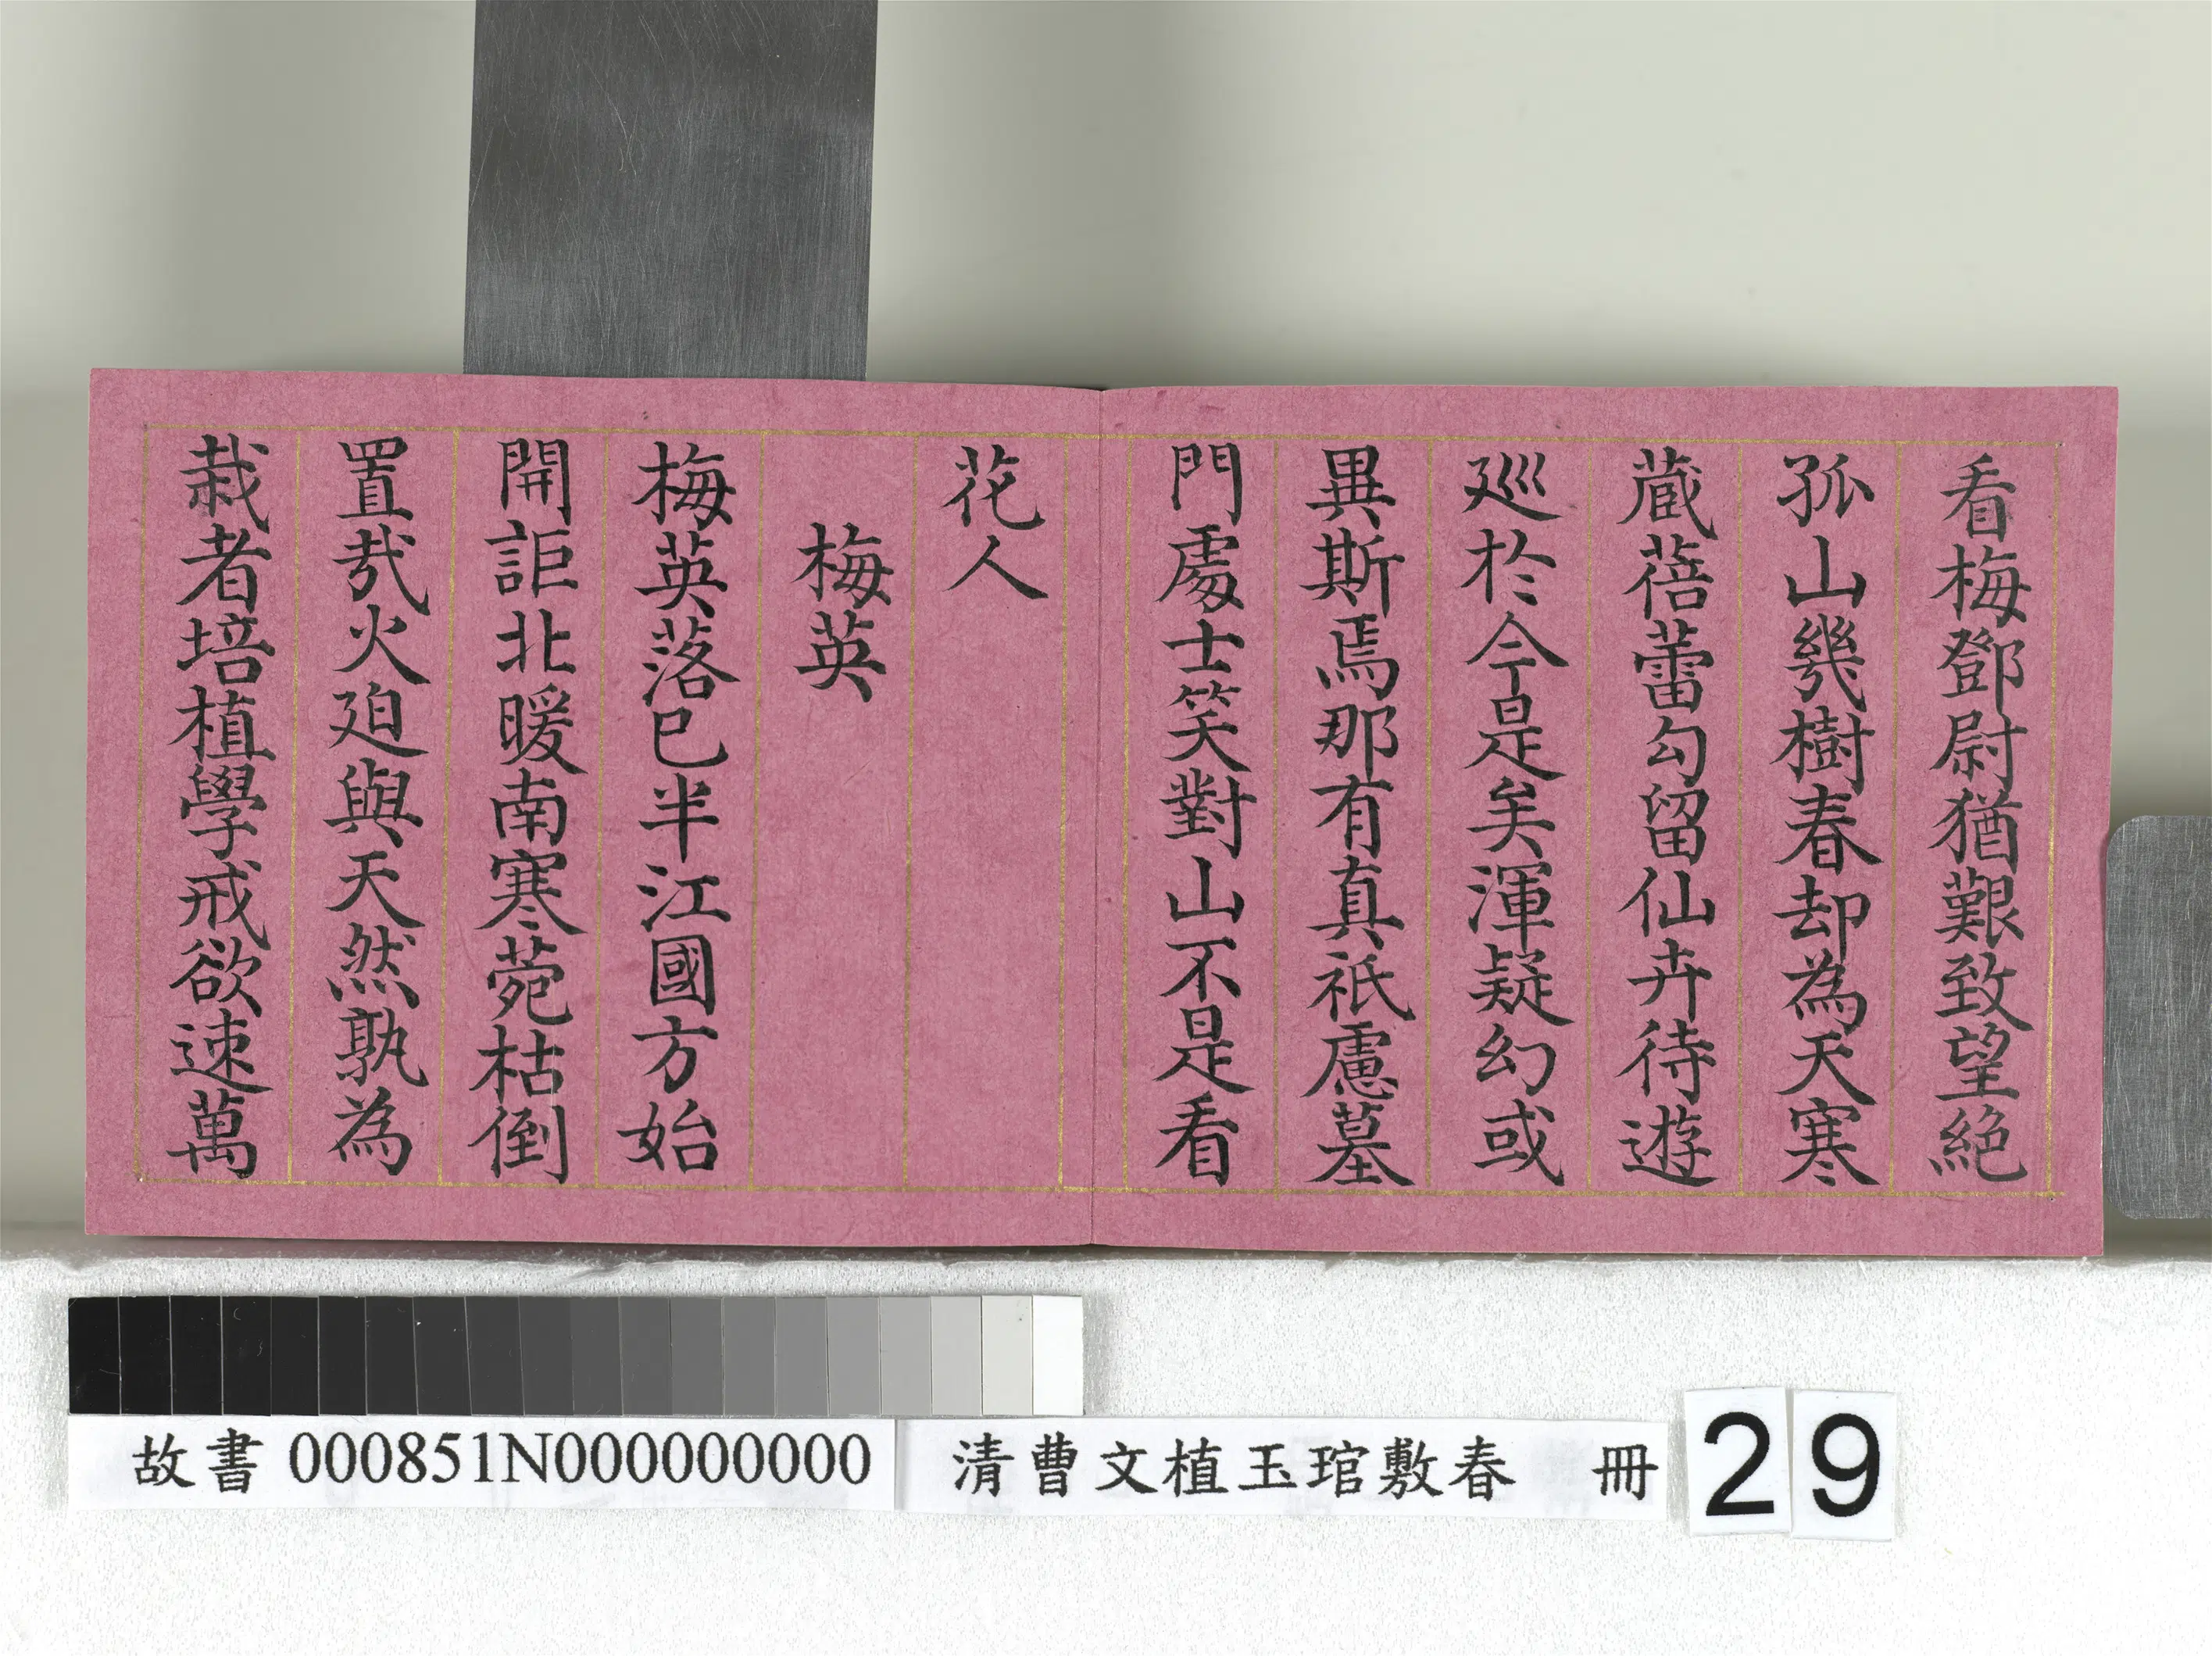 看梅鄧尉猶艱致望絕
孤山幾樹春却為天寒
蔵蓓蕾勾留仙卉待遊
廵於今是矣渾疑幻或
異斯焉那有真祇慮墓
門處士笑對山不是看
花人
梅英
梅英落已半江國方始
開詎北暖南寒菀枯倒
置㦲火廹與天然孰為
栽者培植學戒欲速萬
故書 000851N000000000
清曹文植玉琯敷春 冊
29